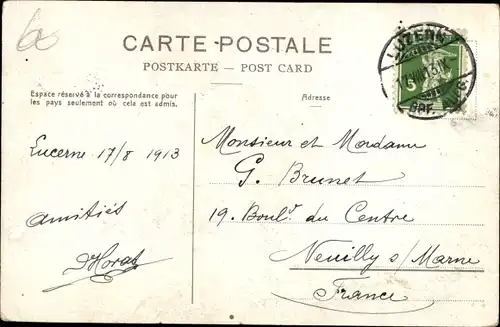 CARTE POSTALE
POSTKARTE — POST CARD
Espace réservé à la correspondance pour
les pays seulement où cela est admis.
Adresse
LUZERN
5
BRF.
Lucerne 17/8 1913
Amitiés
Monsieur et Madame
G. Brunet
19. Boul.d du Centre
Neuilly s/Marne
France